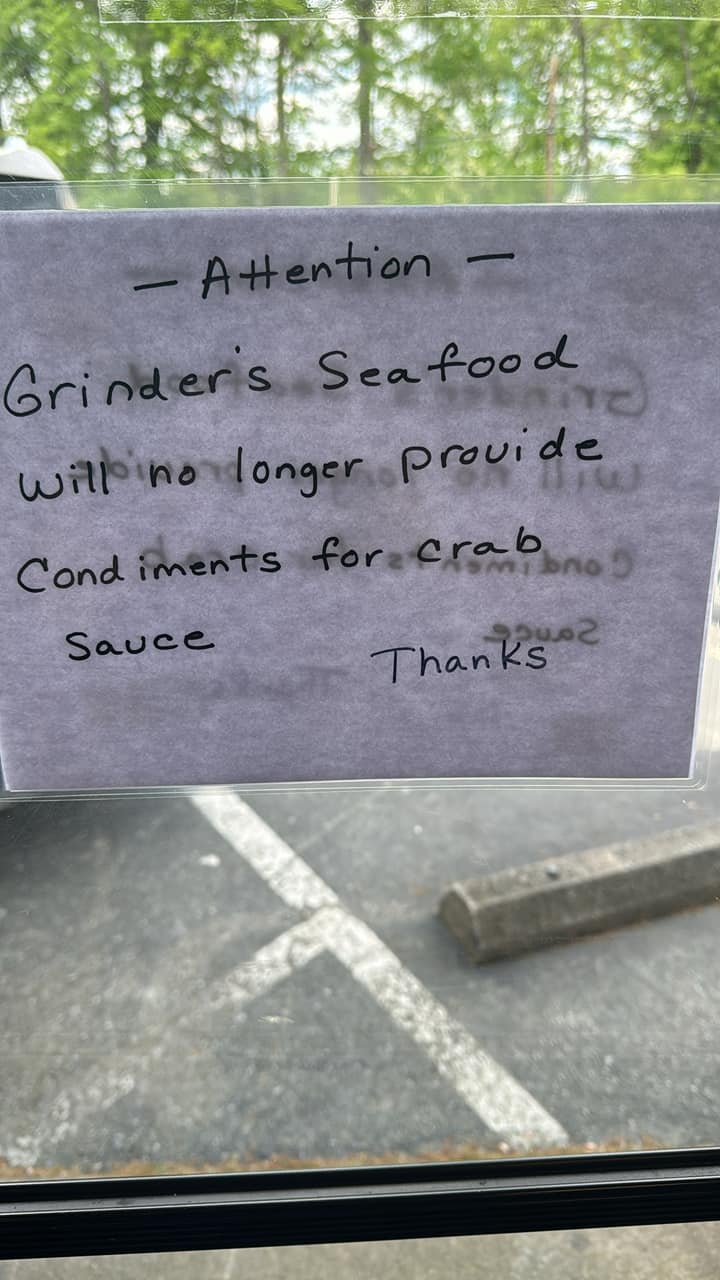 — Attention —
Grinder's Seafood
will no longer provide
Condiments for crab
Sauce
Thanks